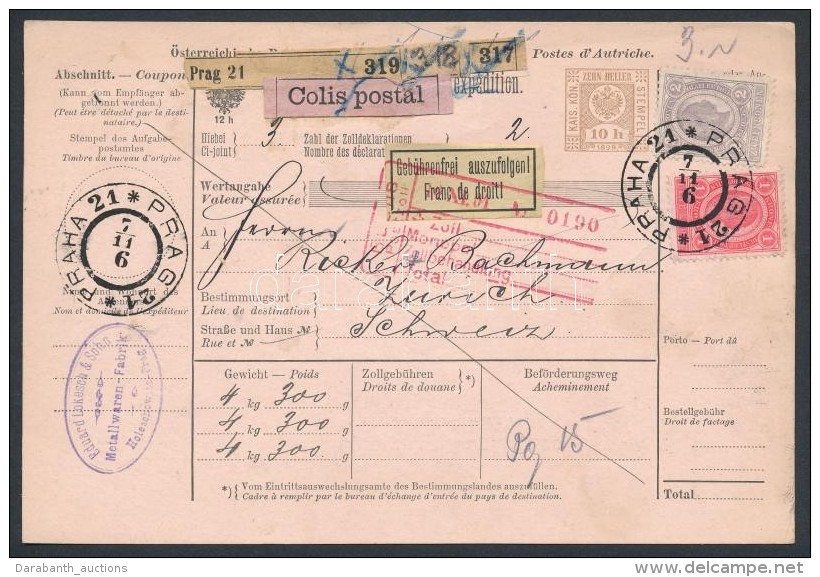 Postes d'Autriche.
3.N
Abschnitt. — Coupon
Prag 21
319
318
317
(Kann vom Empfänger ab-
getrennt werden.)
(Peut être détaché par le desti-
nataire.)
Colis postal
expédition.
ZEHN HELLER
KAIS. KÖN.
STEMPEL
10 h
1898
2
12 h
Stempel des Aufgabe-
postamtes
Timbre du bureau d'origine
Hiebei
Ci-joint
3
Zahl der Zolldeklarationen
Nombre des déclarat
2
Gebührenfrei auszufolgen!
Franc de droit!
Wertangabe
Valeur assurée
№ 0190
Zoll
PRAHA 21 * PRAG 21 *
7
11
6
PRAHA 21 * PRAG 21 *
7
11
6
1
1
An
A
Herrn
Rickert Bachmann
Bestimmungsort
Lieu de destination
Zürich
Nom et domicile de l'expéditeur
Straße und Haus №
Rue et №
Schweiz
Porto — Port dû
Eduard Lokesch & Sohn
Metallwaren-Fabrik
Gewicht — Poids
Zollgebühren
Droits de douane
*)
Beförderungsweg
Acheminement
4 kg 300 g
4 kg 300 g
4 kg 300 g
Bestellgebühr
Droit de factage
*) Vom Eintrittsauswechslungsamte des Bestimmungslandes auszufüllen.
Cadre à remplir par le bureau d'échange d'entrée du pays de destination.
Total
darabanth
Darabanth_auctions
delcampe.net